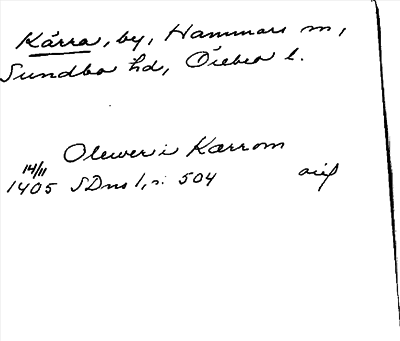 Kärra, by, Hammars sn,
Sundbo hd, Örebro l.
Olewer i Karrom
14/11
1405 SDns 1, s. 504 avs